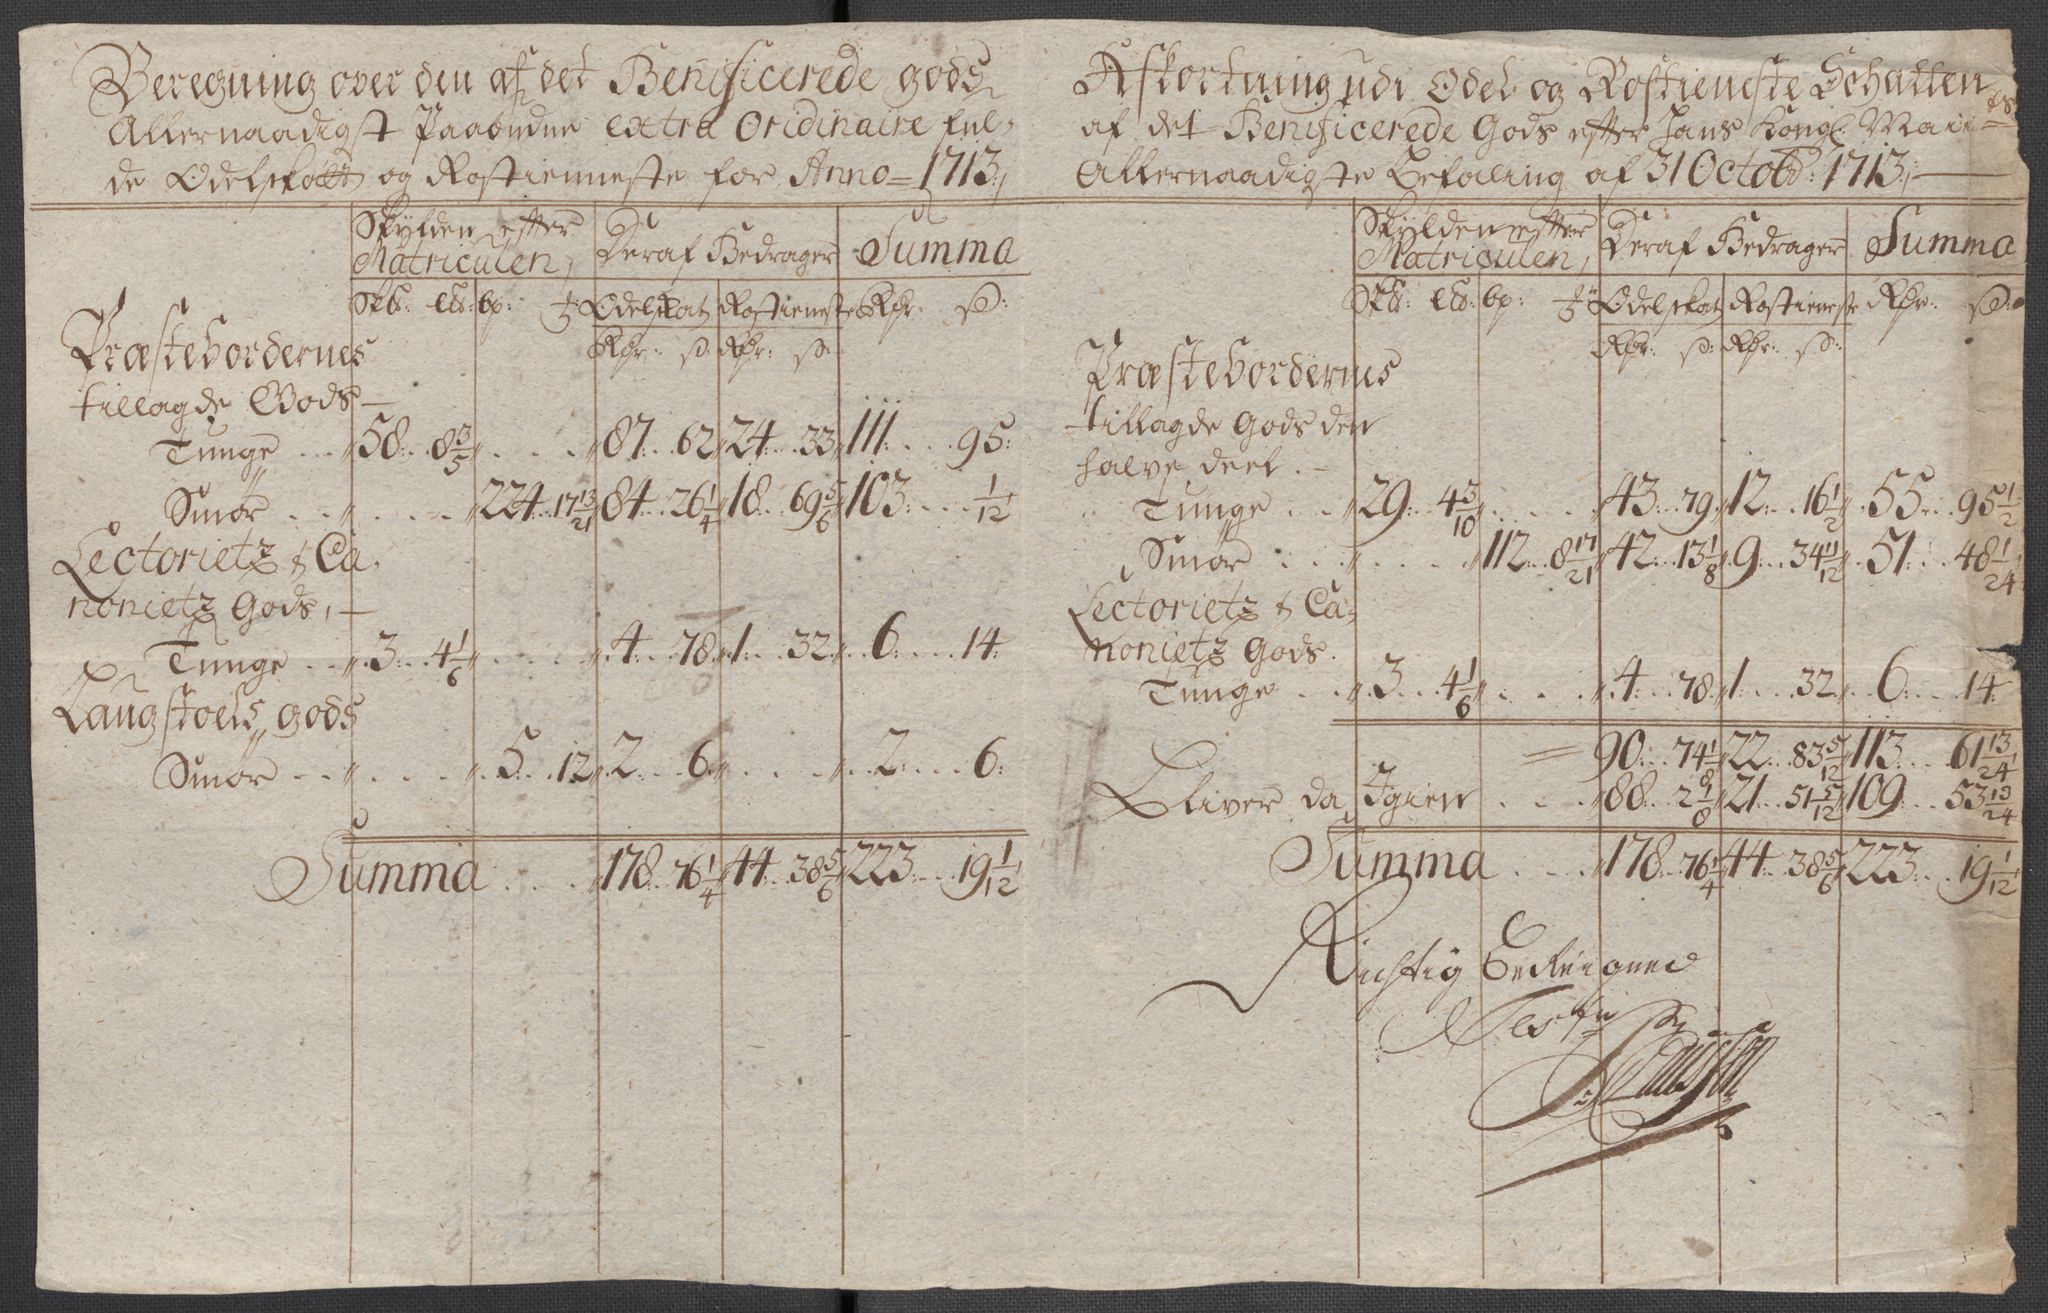 Beregning over den af det Beneficerede gods
Allernaadigst Paabudne extra Oridinaire ful-
de Odelskatt og Rostienneste for Anno 1713,
Skylden efter Deraf Bedrager Summa
Matriculen,
Odelskat Rostieneste Rdr: ß:
Rdr: ß: Rdr: ß:
Præstebordernes
tillagde Gods
Tunge 58 8 3/5 87 62 24 33 111 95
Smør 224 17 13/21 84 26 1/4 18 69 5/6 103 1/12
Lectorietz & Ca-
nonietz Gods,
Tunge 3 4 1/6 4 78 1 32 6 14
Laugstoels gods
Smør 5 12 2 6 2 6
Summa 178 76 1/4 44 38 5/6 223 19 1/12
Afkortning udi Odel og Rostieneste Schatten
af det Beneficerede Gods efter Hans Kongl: Maii:ts
Allernaadigste Befaling af 31 Octobr: 1713,
Skylden efter Deraf Bedrager Summa
Matriculen,
Odelskat Rostieneste Rdr: ß:
Rdr: ß: Rdr: ß:
Præstebordernes
tillagde Gods den
halve deel
Tunge 29 4 3/10 43 79 12 16 1/2 55 95 1/2
Smør 112 8 17/21 42 13 1/8 9 34 11/12 51 48 1/24
Lectorietz & Ca-
nonietz Gods
Tunge 3 4 1/6 4 78 1 32 6 14
90 74 1/8 22 83 5/12 113 61 13/24
Bliver da Igien 88 2 1/8 21 51 5/12 109 53 13/24
Summa 178 76 1/4 44 38 5/6 223 19 1/12
Richtig